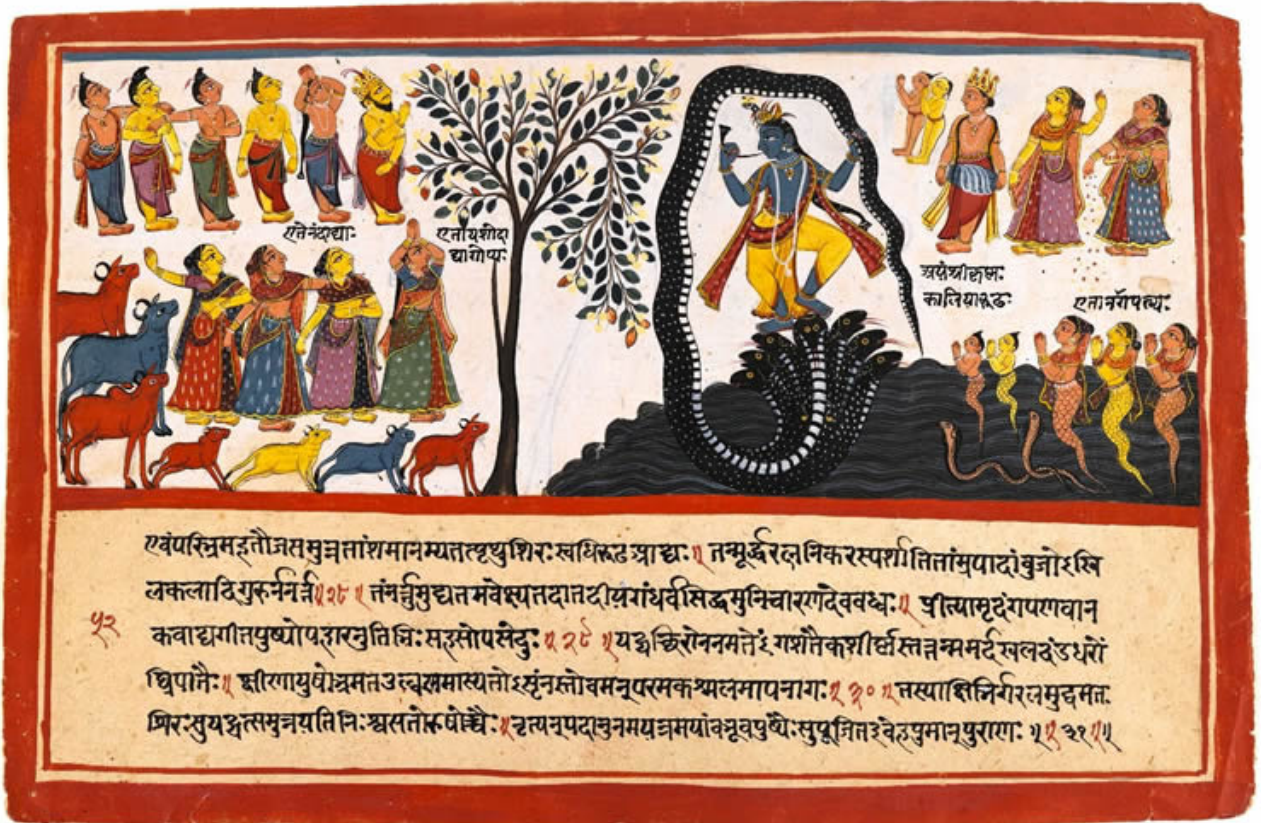 एतेनंदाद्याः
एतायशोदा
द्यागोप्यः
अयंश्रीकृष्णः
कालियारूढः
एतानागपत्न्यः
एवंपरिभ्रमहतौजसमुन्नतांशमानम्यतत्पृथुशिरःस्वधिरूढआद्यः॥ तन्मूर्द्धरत्ननिकरस्पर्शातिताम्रपादांबुजोऽखि
लकलादिगुरुर्ननर्त्त॥२८॥ तंनर्त्तुमुद्यतमवेक्ष्यतदातदीयगंधर्वसिद्धमुनिचारणदेववध्वः॥ प्रीत्यामृदंगपणवान
५२
कवाद्यगीतपुष्पोपहारनुतिभिःसहसोपसेदुः॥२९॥यद्यच्छिरोननमतेऽंगशतैकशीर्ष्णस्तत्तन्ममर्दखलदंडधरों
घ्रिपातैः॥ क्षीणायुषोभ्रमतउल्बणमास्यतोऽसृङ्नस्तोवमन्परमकश्मलमापनागः॥३०॥तस्याक्षिभिर्गरलमुद्वमतः
शिरःसुयद्यत्समुन्नयतिनिःश्वसतोरुषोच्चैः॥नृत्यन्पदानुनमयन्नमयांबभूवपुष्पैःसुपूजितइवेहपुमान्पुराणः॥॥३१॥॥